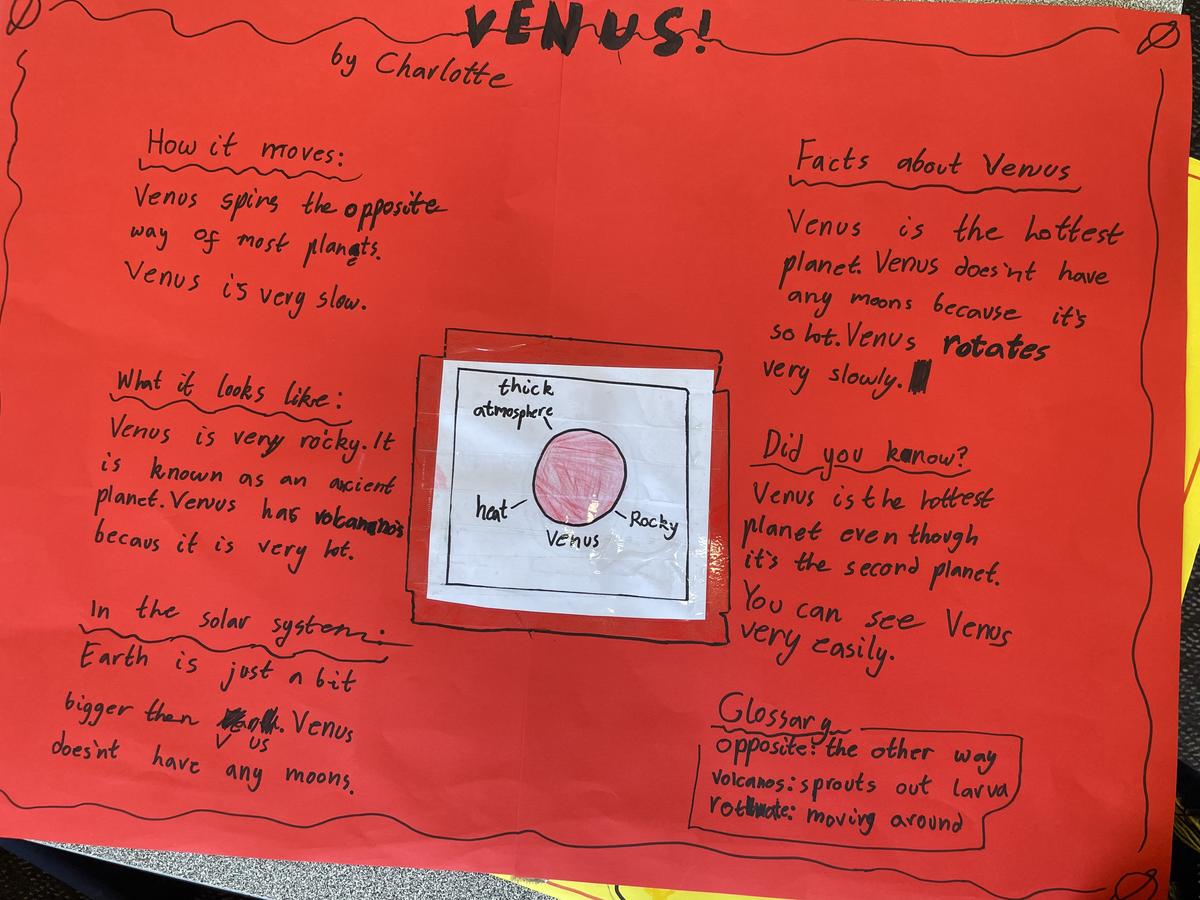 VENUS!
by Charlotte
How it moves:
Venus spins the opposite
way of most planets.
Venus is very slow.
What it looks like:
Venus is very rocky. It
is known as an aicient
planet. Venus has volcanano's
becaus it is very hot.
In the solar system:
Earth is just a bit
bigger then us. Venus
does'nt have any moons.
thick
atmosphere
heat
Rocky
Venus
Facts about Venus
Venus is the hottest
planet. Venus does'nt have
any moons because it's
so hot. Venus rotates
very slowly.
Did you know?
Venus is the hottest
planet even though
it's the second planet.
You can see Venus
very easily.
Glossary
opposite: the other way
volcanos: sprouts out larva
rotate: moving around